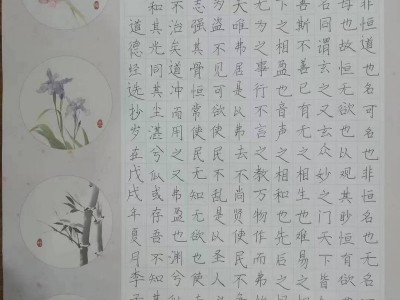 非恒道也名可名也非恒名也无名
母也故恒无欲也以观其眇恒有欲
名同谓玄之又玄众妙之门天下皆
善斯不善已有无之相生也难易之
下之相盈也音声之相和也先后之
无为之事行不言之教万物作而弗
夫唯弗居是以弗去不尚贤使民不
为盗不见可欲使民不乱是以圣人之
志强其骨恒常使民无知无欲也使
不治矣道冲而用之又弗盈也渊兮似
和其光同其尘湛兮似或存吾不知其
道德经选抄岁在戊戌年夏月李